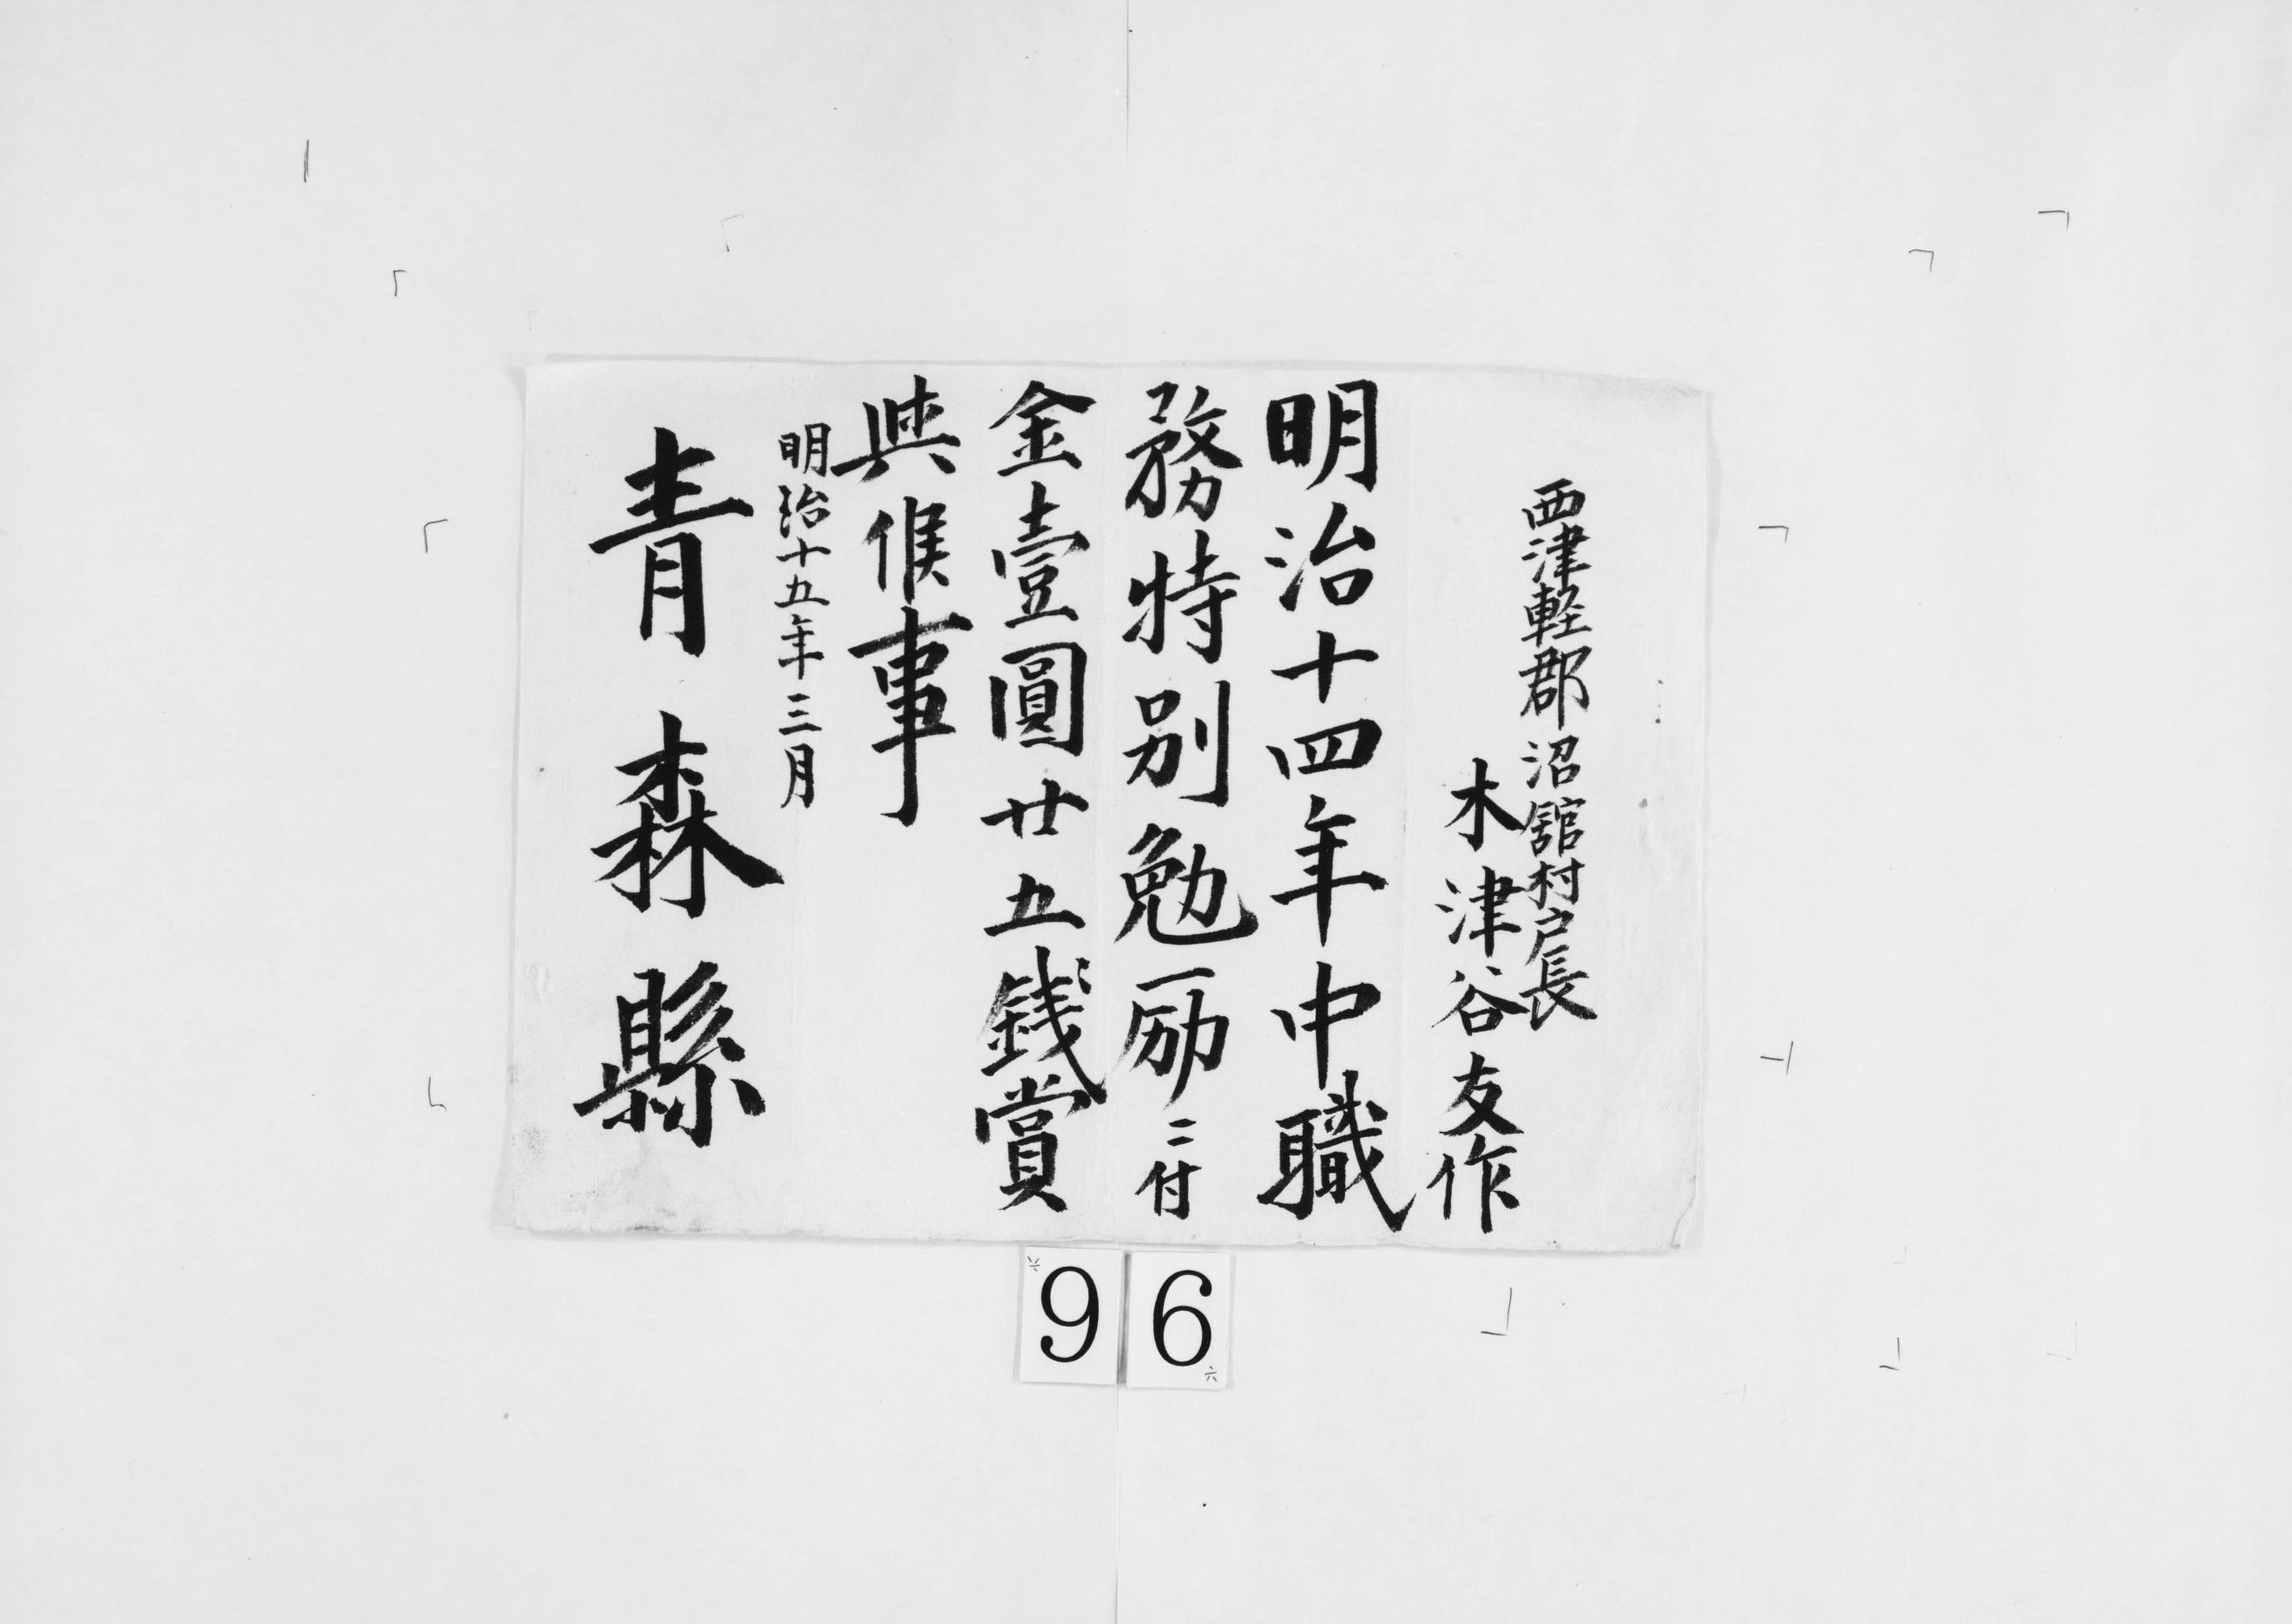 西津軽郡沼舘村戸長
木津谷友作
明治十四年中職
務特別勉励ニ付
金壹圓廿五銭賞
與候事
明治十五年三月
青森縣
96